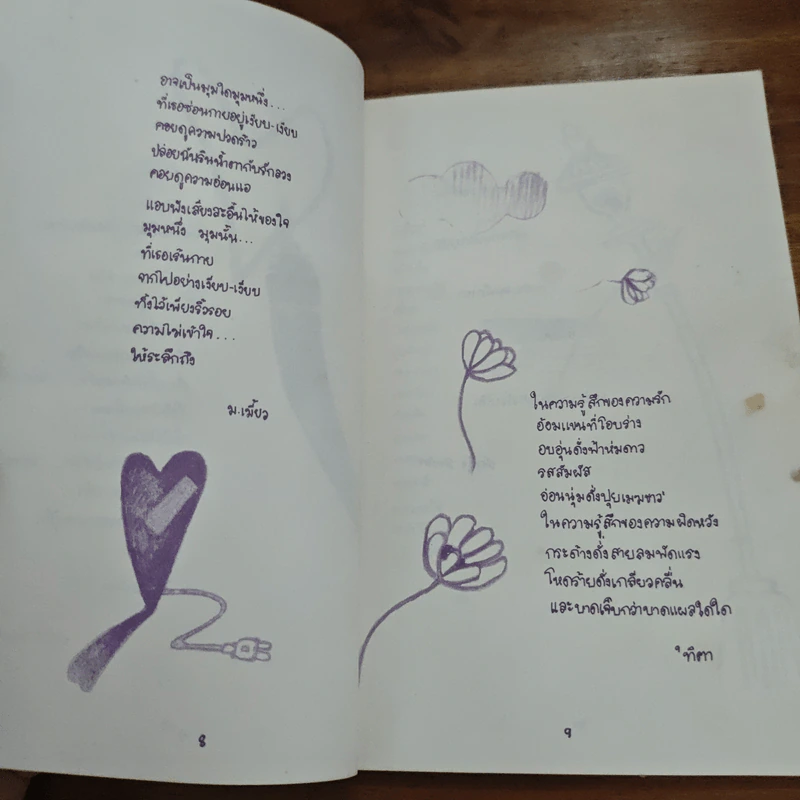 อาจเป็นมุมใดมุมหนึ่ง...
ที่เธอซ่อนกายอยู่เงียบ-เงียบ
คอยดูความปวดร้าว
ปล่อยฉันรินน้ำตากับรักลวง
คอยดูความอ่อนแอ
แอบฟังเสียงสะอื้นไห้ของใจ
มุมหนึ่ง มุมนั้น...
ที่เธอเดินกาย
จากไปอย่างเงียบ-เงียบ
ทิ้งไว้เพียงริ้วรอย
ความไม่เข้าใจ...
ให้ระลึกถึง
ม.เมี้ยว
8
ในความรู้สึกของความรัก
อ้อมแขนที่โอบร่าง
อบอุ่นดั่งฟ้าห่มดาว
รสสัมผัส
อ่อนนุ่มดั่งปุยเมฆขาว
ในความรู้สึกของความผิดหวัง
กระด้างดั่งสายลมพัดแรง
โหดร้ายดั่งเกลียวคลื่น
และบาดเจ็บกว่าบาดแผลใดใด
ทิตา
9